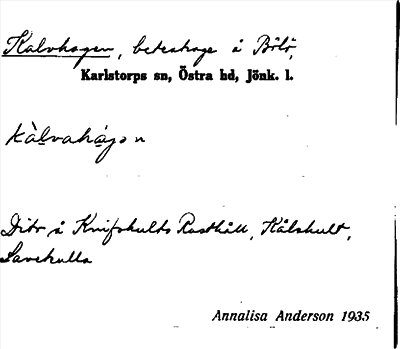 Kalvhagen, beteshage å Bölö,
Karlstorps sn, Östra hd, Jönk. l.
kàlvahágən
Dito å Knifshults Rusthåll, Kålshult,
Lavekulla
Annalisa Anderson 1935